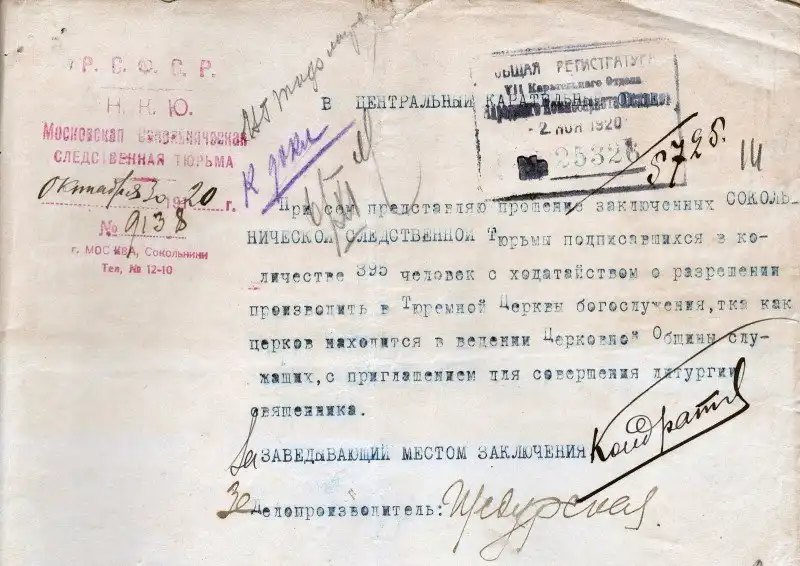 Р. С. Ф. С. Р.
Н. К. Ю.
Московская Сокольническая
СЛЕДСТВЕННАЯ ТЮРЬМА
Октября 30 1920 г.
№ 9138
г. МОСКВА, Сокольники
Тел, № 12-10
К докл
ОБЩАЯ РЕГИСТРАТУРА
VII Карательного Отдела
- 2 НОЯ 1920
25326
5725.
В ЦЕНТРАЛЬНЫЙ КАРАТЕЛЬНЫЙ
При сем представляю прошение заключенных СОКОЛЬ-
НИЧЕСКОЙ СЛЕДСТВЕННОЙ Тюрьмы подписавшихся в ко-
личестве 395 человек с ходатайством о разрешении
производить в Тюремной Церквы богослужения, тка как
церков находится в ведении Церковной Общины слу-
жащих, с приглашением для совершения литургии
священника.
За ЗАВЕДЫВАЮЩИЙ МЕСТОМ ЗАКЛЮЧЕНИЯ
За Делопроизводитель: